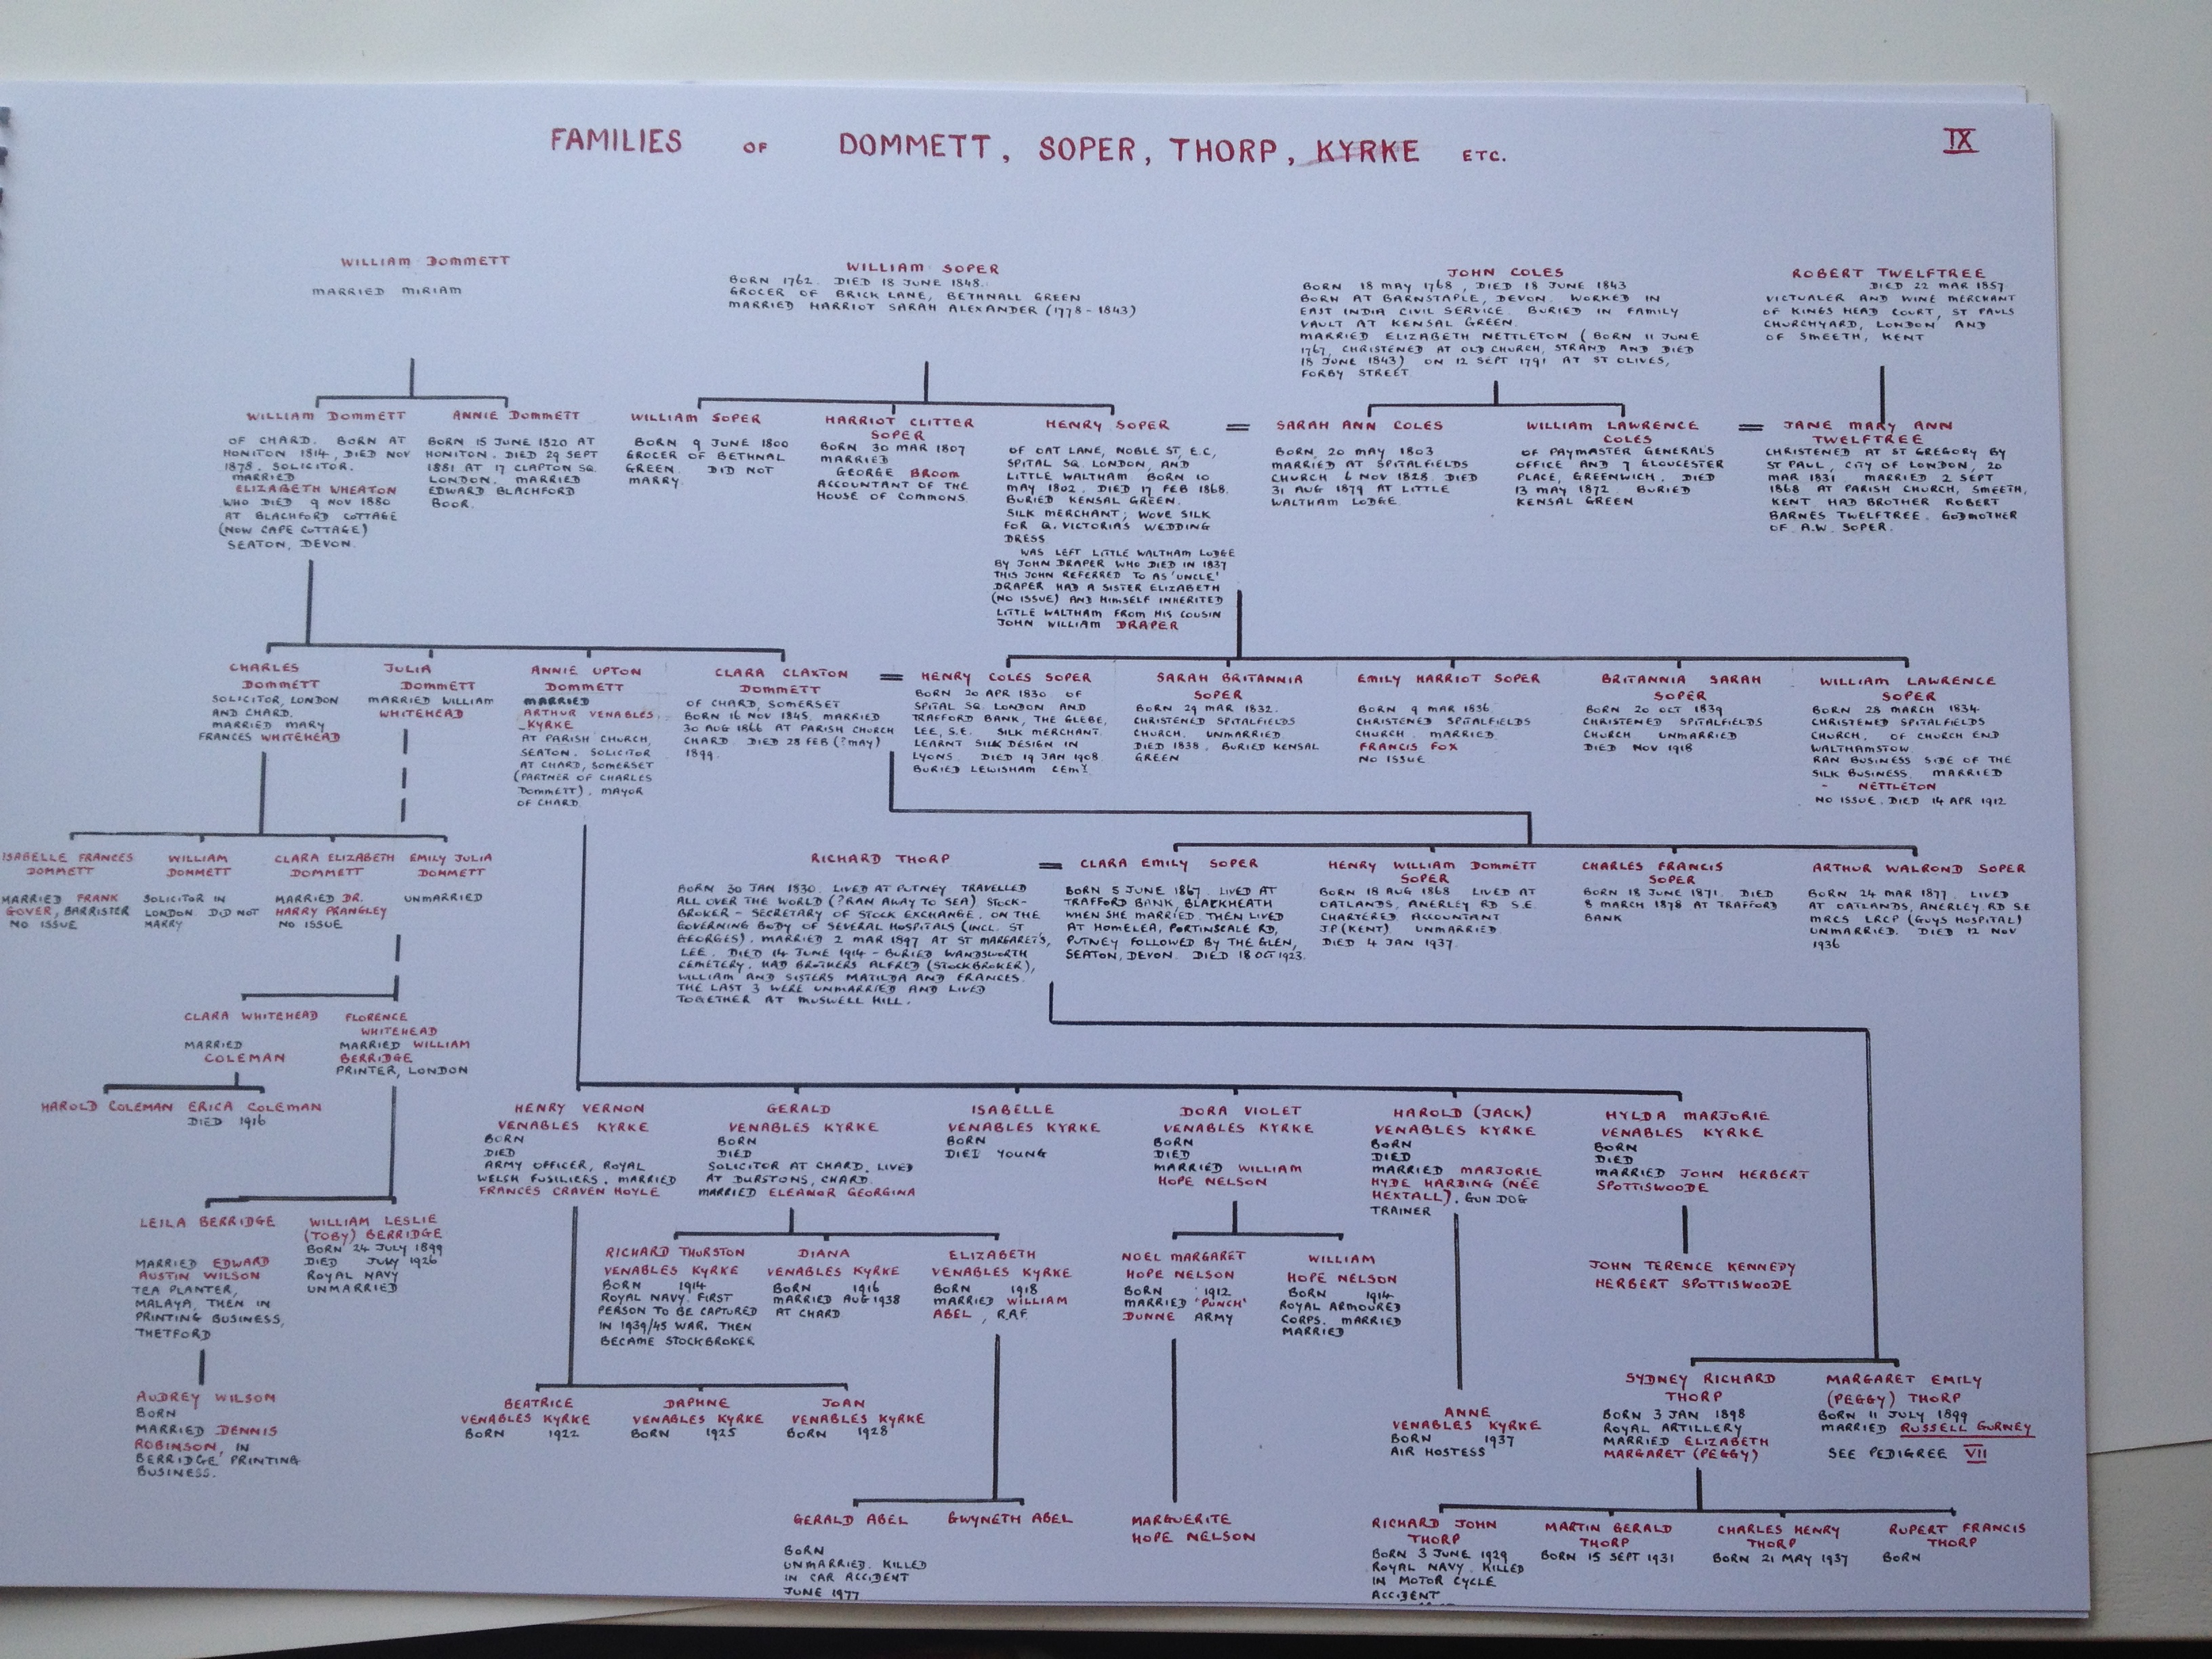 FAMILIES OF DOMMETT, SOPER, THORP, KYRKE ETC.
IX
WILLIAM DOMMETT
MARRIED MIRIAM
WILLIAM SOPER
BORN 1762. DIED 18 JUNE 1848.
GROCER OF BRICK LANE, BETHNALL GREEN
MARRIED HARRIOT SARAH ALEXANDER (1778-1843)
JOHN COLES
BORN 18 MAY 1768, DIED 18 JUNE 1843
BORN AT BARNSTAPLE, DEVON. WORKED IN
EAST INDIA CIVIL SERVICE. BURIED IN FAMILY
VAULT AT KENSAL GREEN.
MARRIED ELIZABETH NETTLETON (BORN 11 JUNE
1767, CHRISTENED AT OLD CHURCH, STRAND AND DIED
18 JUNE 1843) ON 12 SEPT 1791 AT ST OLIVES,
FORBY STREET.
ROBERT TWELFTREE
DIED 22 MAR 1857
VICTUALER AND WINE MERCHANT
OF KINGS HEAD COURT, ST PAULS
CHURCHYARD, LONDON AND
OF SMEETH, KENT
WILLIAM DOMMETT
OF CHARD. BORN AT
HONITON 1814, DIED NOV
1878. SOLICITOR.
MARRIED
ELIZABETH WHEATON
WHO DIED 9 NOV 1880
AT BLACHFORD COTTAGE
(NOW CAPE COTTAGE)
SEATON, DEVON.
ANNIE DOMMETT
BORN 15 JUNE 1820 AT
HONITON. DIED 29 SEPT
1881 AT 17 CLAPTON SQ.
LONDON. MARRIED
EDWARD BLACHFORD
BOOR.
WILLIAM SOPER
BORN 9 JUNE 1800
GROCER OF BETHNAL
GREEN. DID NOT
MARRY.
HARRIOT CLITTER
SOPER
BORN 30 MAR 1807
MARRIED
GEORGE BROOM
ACCOUNTANT OF THE
HOUSE OF COMMONS.
HENRY SOPER
OF OAT LANE, NOBLE ST, E.C,
SPITAL SQ. LONDON, AND
LITTLE WALTHAM. BORN 10
MAY 1802. DIED 17 FEB 1868.
BURIED KENSAL GREEN.
SILK MERCHANT; WOVE SILK
FOR Q. VICTORIA'S WEDDING
DRESS
WAS LEFT LITTLE WALTHAM LODGE
BY JOHN DRAPER WHO DIED IN 1837
THIS JOHN REFERRED TO AS 'UNCLE'
DRAPER HAD A SISTER ELIZABETH
(NO ISSUE) AND HIMSELF INHERITED
LITTLE WALTHAM FROM HIS COUSIN
JOHN WILLIAM DRAPER
=
SARAH ANN COLES
BORN, 20 MAY 1803
MARRIED AT SPITALFIELDS
CHURCH 6 NOV 1828. DIED
31 AUG 1879 AT LITTLE
WALTHAM LODGE.
WILLIAM LAWRENCE
COLES
OF PAYMASTER GENERAL'S
OFFICE AND 7 GLOUCESTER
PLACE, GREENWICH. DIED
13 MAY 1872. BURIED
KENSAL GREEN
=
JANE MARY ANN
TWELFTREE
CHRISTENED AT ST GREGORY BY
ST PAUL, CITY OF LONDON, 20
MAR 1831 MARRIED 2 SEPT
1868 AT PARISH CHURCH, SMEETH,
KENT HAD BROTHER ROBERT
BARNES TWELFTREE. GODMOTHER
OF A.W. SOPER.
CHARLES
DOMMETT
SOLICITOR, LONDON
AND CHARD.
MARRIED MARY
FRANCES WHITEHEAD
JULIA
DOMMETT
MARRIED WILLIAM
WHITEHEAD
ANNIE UPTON
DOMMETT
MARRIED
ARTHUR VENABLES
KYRKE
AT PARISH CHURCH,
SEATON. SOLICITOR
AT CHARD, SOMERSET
(PARTNER OF CHARLES
DOMMETT). MAYOR
OF CHARD.
CLARA CLAXTON
DOMMETT
OF CHARD, SOMERSET
BORN 16 NOV 1845. MARRIED
30 AUG 1866 AT PARISH CHURCH
CHARD. DIED 28 FEB (?MAY)
1899.
=
HENRY COLES SOPER
BORN 20 APR 1830 OF
SPITAL SQ. LONDON AND
TRAFFORD BANK, THE GLEBE,
LEE, S.E. SILK MERCHANT.
LEARNT SILK DESIGN IN
LYONS. DIED 19 JAN 1908.
BURIED LEWISHAM CEMY.
SARAH BRITANNIA
SOPER
BORN 29 MAR 1832.
CHRISTENED SPITALFIELDS
CHURCH. UNMARRIED.
DIED 1838, BURIED KENSAL
GREEN
EMILY HARRIOT SOPER
BORN 9 MAR 1836.
CHRISTENED SPITALFIELDS
CHURCH. MARRIED.
FRANCIS FOX
NO ISSUE
BRITANNIA SARAH
SOPER
BORN 20 OCT 1839
CHRISTENED SPITALFIELDS
CHURCH UNMARRIED
DIED NOV 1918
WILLIAM LAWRENCE
SOPER
BORN 28 MARCH 1834.
CHRISTENED SPITALFIELDS
CHURCH, OF CHURCH END
WALTHAMSTOW.
RAN BUSINESS SIDE OF THE
SILK BUSINESS. MARRIED
- NETTLETON
NO ISSUE. DIED 14 APR 1912
ISABELLE FRANCES
DOMMETT
MARRIED FRANK
GOVER, BARRISTER
NO ISSUE
WILLIAM
DOMMETT
SOLICITOR IN
LONDON. DID NOT
MARRY
CLARA ELIZABETH
DOMMETT
MARRIED DR.
HARRY PRANGLEY
NO ISSUE
EMILY JULIA
DOMMETT
UNMARRIED
RICHARD THORP
BORN 30 JAN 1830. LIVED AT PUTNEY TRAVELLED
ALL OVER THE WORLD (?RAN AWAY TO SEA) STOCK-
BROKER - SECRETARY OF STOCK EXCHANGE. ON THE
GOVERNING BODY OF SEVERAL HOSPITALS (INCL. ST
GEORGES). MARRIED 2 MAR 1897 AT ST MARGARET'S,
LEE. DIED 14 JUNE 1914 - BURIED WANDSWORTH
CEMETERY. HAD BROTHERS ALFRED (STOCKBROKER),
WILLIAM AND SISTERS MATILDA AND FRANCES.
THE LAST 3 WERE UNMARRIED AND LIVED
TOGETHER AT MUSWELL HILL.
=
CLARA EMILY SOPER
BORN 5 JUNE 1867. LIVED AT
TRAFFORD BANK, BLACKHEATH
WHEN SHE MARRIED. THEN LIVED
AT HOMELEA, PORTINSCALE RD,
PUTNEY FOLLOWED BY THE GLEN,
SEATON, DEVON. DIED 18 OCT 1923.
HENRY WILLIAM DOMMETT
SOPER
BORN 18 AUG 1868 LIVED AT
OATLANDS, ANERLEY RD S.E.
CHARTERED ACCOUNTANT
J.P (KENT). UNMARRIED.
DIED 4 JAN 1937.
CHARLES FRANCIS
SOPER
BORN 18 JUNE 1871. DIED
8 MARCH 1878 AT TRAFFORD
BANK
ARTHUR WALROND SOPER
BORN 24 MAR 1877, LIVED
AT OATLANDS, ANERLEY RD S.E
MRCS LRCP (GUYS HOSPITAL)
UNMARRIED. DIED 12 NOV
1936
CLARA WHITEHEAD
MARRIED
COLEMAN
FLORENCE
WHITEHEAD
MARRIED WILLIAM
BERRIDGE
PRINTER, LONDON
HAROLD COLEMAN
ERICA COLEMAN
DIED 1916
HENRY VERNON
VENABLES KYRKE
BORN
DIED
ARMY OFFICER, ROYAL
WELSH FUSILIERS. MARRIED
FRANCES CRAVEN HOYLE
GERALD
VENABLES KYRKE
BORN
DIED
SOLICITOR AT CHARD. LIVED
AT DURSTONS, CHARD.
MARRIED ELEANOR GEORGINA
ISABELLE
VENABLES KYRKE
BORN
DIED YOUNG
DORA VIOLET
VENABLES KYRKE
BORN
DIED
MARRIED WILLIAM
HOPE NELSON
HAROLD (JACK)
VENABLES KYRKE
BORN
DIED
MARRIED MARJORIE
HYDE HARDING (NÉE
HEXTALL). GUN DOG
TRAINER
HYLDA MARJORIE
VENABLES KYRKE
BORN
DIED
MARRIED JOHN HERBERT
SPOTTISWOODE
LEILA BERRIDGE
MARRIED EDWARD
AUSTIN WILSON
TEA PLANTER,
MALAYA, THEN IN
PRINTING BUSINESS,
THETFORD
WILLIAM LESLIE
(TOBY) BERRIDGE
BORN 24 JULY 1899
DIED JULY 1926
ROYAL NAVY
UNMARRIED
RICHARD THURSTON
VENABLES KYRKE
BORN 1914
ROYAL NAVY. FIRST
PERSON TO BE CAPTURED
IN 1939/45 WAR. THEN
BECAME STOCKBROKER
DIANA
VENABLES KYRKE
BORN 1916
MARRIED AUG 1938
AT CHARD
ELIZABETH
VENABLES KYRKE
BORN 1918
MARRIED WILLIAM
ABEL, R.A.F.
NOEL MARGARET
HOPE NELSON
BORN 1912
MARRIED 'PUNCH'
DUNNE ARMY
WILLIAM
HOPE NELSON
BORN 1914
ROYAL ARMOURED
CORPS. MARRIED
MARRIED
JOHN TERENCE KENNEDY
HERBERT SPOTTISWOODE
AUDREY WILSON
BORN
MARRIED DENNIS
ROBINSON, IN
BERRIDGE PRINTING
BUSINESS.
BEATRICE
VENABLES KYRKE
BORN 1922
DAPHNE
VENABLES KYRKE
BORN 1925
JOAN
VENABLES KYRKE
BORN 1928
ANNE
VENABLES KYRKE
BORN 1937
AIR HOSTESS
SYDNEY RICHARD
THORP
BORN 3 JAN 1898
ROYAL ARTILLERY
MARRIED ELIZABETH
MARGARET (PEGGY)
MARGARET EMILY
(PEGGY) THORP
BORN 11 JULY 1899
MARRIED RUSSELL GURNEY
SEE PEDIGREE VII
GERALD ABEL
BORN
UNMARRIED. KILLED
IN CAR ACCIDENT
JUNE 1977
GWYNETH ABEL
MARGUERITE
HOPE NELSON
RICHARD JOHN
THORP
BORN 3 JUNE 1929
ROYAL NAVY. KILLED
IN MOTOR CYCLE
ACCIDENT
MARTIN GERALD
THORP
BORN 15 SEPT 1931
CHARLES HENRY
THORP
BORN 21 MAY 1937
RUPERT FRANCIS
THORP
BORN